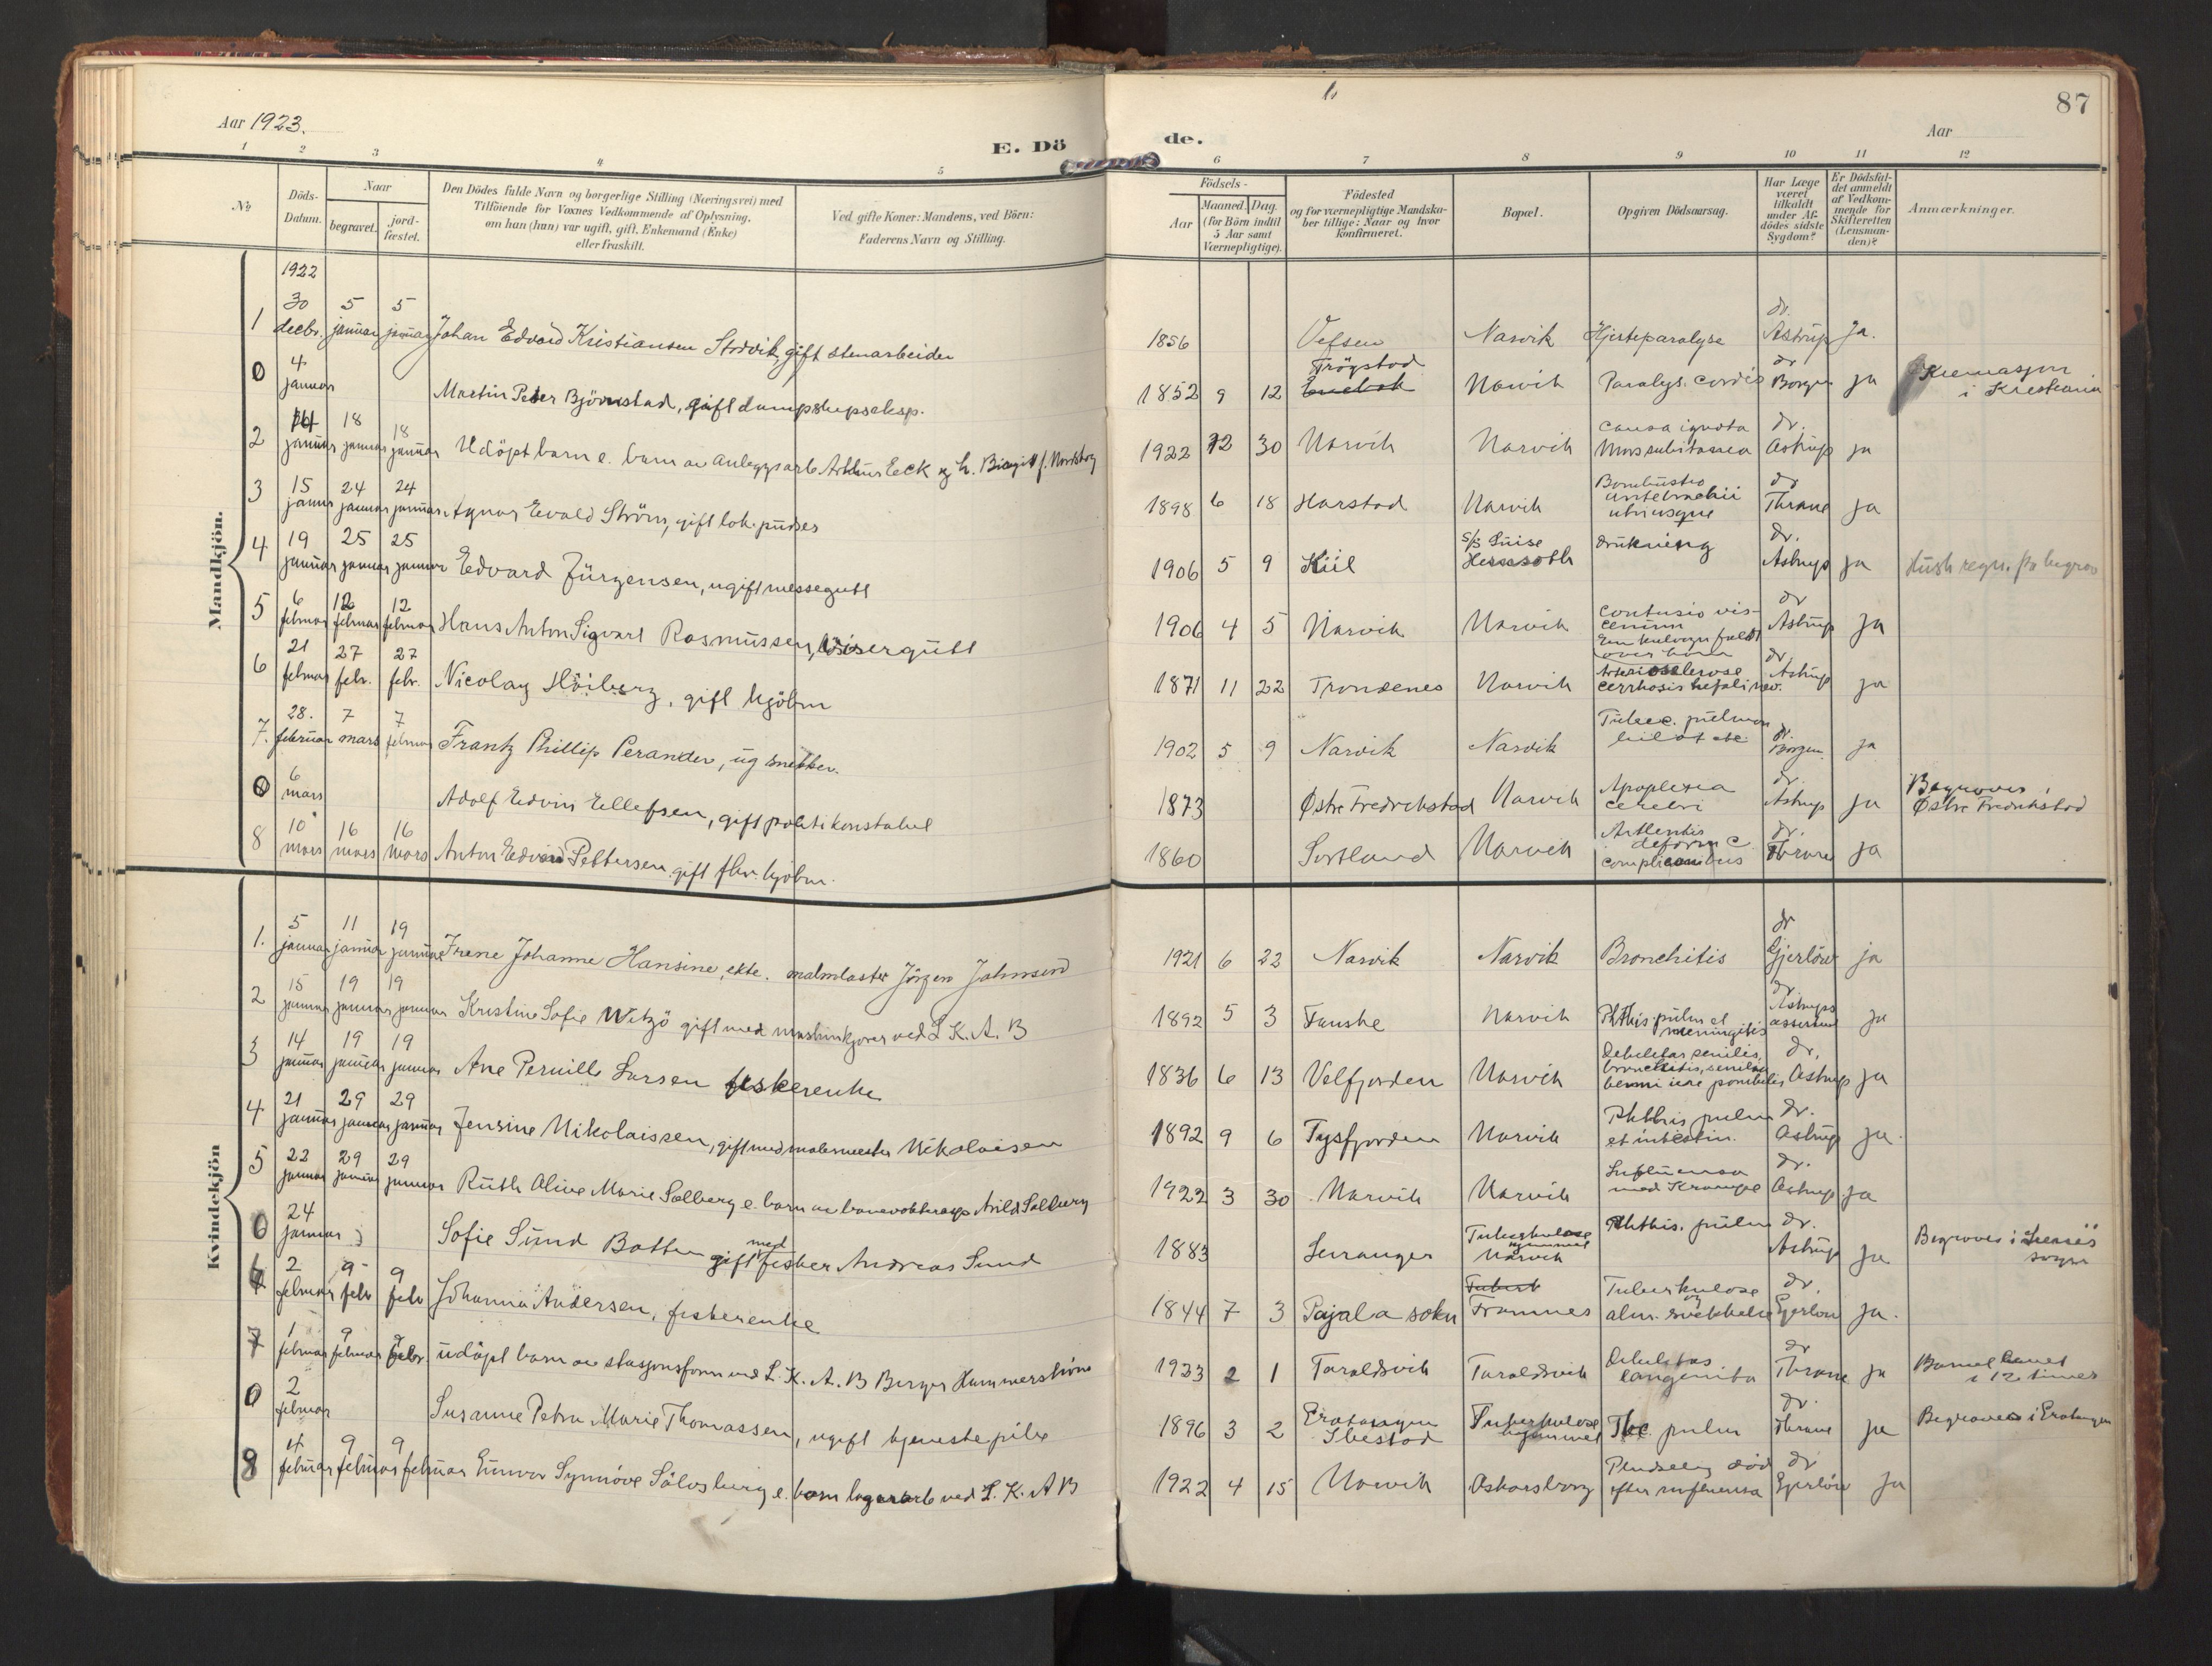 87
Aar 1923.
E. Dö
de.
Aar
1 2 3 4 5 6 7 8 9 10 11 12
No
Döds-Datum.
Naar
begravet.
jord-fæstet.
Den Dödes fulde Navn og borgerlige Stilling (Næringsvei) med
Tilföiende for Voxnes Vedkommende af Oplysning,
om han (hun) var ugift, gift, Enkemand (Enke)
eller fraskilt.
Ved gifte Koner: Mandens, ved Börn:
Faderens Navn og Stilling.
Födsels-
Aar
Maaned. Dag.
(for Börn indtil
5 Aar samt
Værnepligtige).
Födested
og for værnepligtige Mandska-
ber tillige: Naar og hvor
konfirmeret.
Bopæl.
Opgiven Dödsaarsag.
Har Læge
været
tilkaldt
under Af-
dödes sidste
Sygdom?
Er Dödsfal-
det anmeldt
af Vedkom-
mende for
Skifteretten
(Lensman-
den)?
Anmærkninger.
Mandkjön.
1922
1 30 decbr. 5 januar 5 januar Johan Edvard Kristiansen Strøvik, gift stenarbeider 1856 Vefsen Narvik Hjerteparalyse dr. Astrup Ja.
0 4 januar Martin Peder Björnstad, gift dampskipseksp. 1852 9 12 Trögstad Narvik Paralys. cordis dr Borgen ja Kremasjon i Kristiania
2 14 januar 18 januar 18 januar Udöpt barn e. barn av anleggsarb Arthur Eeck og h. Birgit f. 1922 12 30 Narvik Narvik causa ignota Mors subitanea dr. Astrup ja
3 15 januar 24 januar 24 januar Agnar Evald Ström, gift lok. pudser 1898 6 18 Harstad Narvik Combustio antebrachii utriusque dr Thrane ja
4 19 januar 25 januar 25 januar Edvard Jürgensen, ugift messegutt 1906 5 9 Kiel S/S Luise drukning dr. Astrup ja Husk regn. for begrav
5 6 februar 12 februar 12 februar Hans Anton Sigvart Rasmussen, visergutt 1906 4 5 Narvik Narvik contusio viscerum En kulvogn faldt over ham dr Astrup ja
6 21 februar 27 febr. 27 febr. Nicolay Höiberg, gift kjöbm 1871 11 22 Trondenes Narvik Arteriosclerose cerrhosis hepatis dr. Astrup ja
7. 28. februar 7 mars 7 februar Frantz Phillip Perander, ug snekker. 1902 5 9 Narvik Narvik Tuberc. pulmon dr. Borgen ja
0 6 mars Adolf Edvin Ellefsen, gift politikonstabel 1873 Østre Fredrikstad Narvik Apoplexia cerebri dr. Astrup ja Begraves i Østre Fredrikstad
8 10 mars 16 mars 16 mars Anton Edvard Pettersen gift fhv. kjöbm. 1860 Sortland Narvik deform c complicationibus dr. Thrane ja
Kvindekjön
1. 5 januar 11 januar 19 januar Irene Johanne Hansine, ekte. malmlaster Jörgen Johnsen 1921 6 22 Narvik Narvik Bronchitis dr Gjerlöw ja
2 15 januar 19 januar 19 januar Kristine Sofie Witzö gift med maskinkjører ved L. K. A. B 1892 5 3 Fauske Narvik Phthis. pulm et meningitis dr. Astrups assistent ja
3 14 januar 19 januar 19 januar Ane Pernille Larsen fiskerenke 1836 6 13 Velfjorden Narvik Debilitas senilis, bronchitis, dr. Astrup ja
4 21 januar 29 januar 29 januar Jensine Nikolaissen, gift med malermester Nikolaisen 1892 9 6 Tysfjorden Narvik Phthis pulm et intestin. dr. Astrup ja.
5 22 januar 29 januar 29 januar Ruth Alice Marie Solberg e. barn av banevokterasp Arild Solberg 1922 3 30 Narvik Narvik Influensa med Krampe dr. Astrup ja
0 24 januar Sofie Sund Botten gift med fisker Andreas Sund 1883 Leiranger Tuberkulosehjemmet Narvik Phthis. pulm dr. Astrup ja Begraves i sogn
6 2 februar 9 febr 9 febr Johanna Andersen, fiskerenke 1844 7 3 Pajala sokn Framnes Tuberkulose og alm. svækkelse dr. Gjerlöw ja.
7 1 februar 9 februar 9 febr. udöpt barn av stasjonsform ved L. K. A. B Birger Hammerström 1923 2 1 Taraldsvik Taraldsvik Debilitas congenita dr Thrane ja Barnet levet i 12 timer
0 2 februar Susanne Petra Marie Thomassen, ugift tjenestepike 1896 3 2 Gratangen Ibestad Tuberkulose hjemmet Tbc pulm dr. Thrane ja Begraves i Gratangen
8 4 februar 9 februar 9 februar Gunvor Synnöve Sölvsberg e. barn lagerarb ved L. K. A B 1922 4 15 Narvik Oskarsborg Pludselig död efter influensa dr Gjerlöw ja